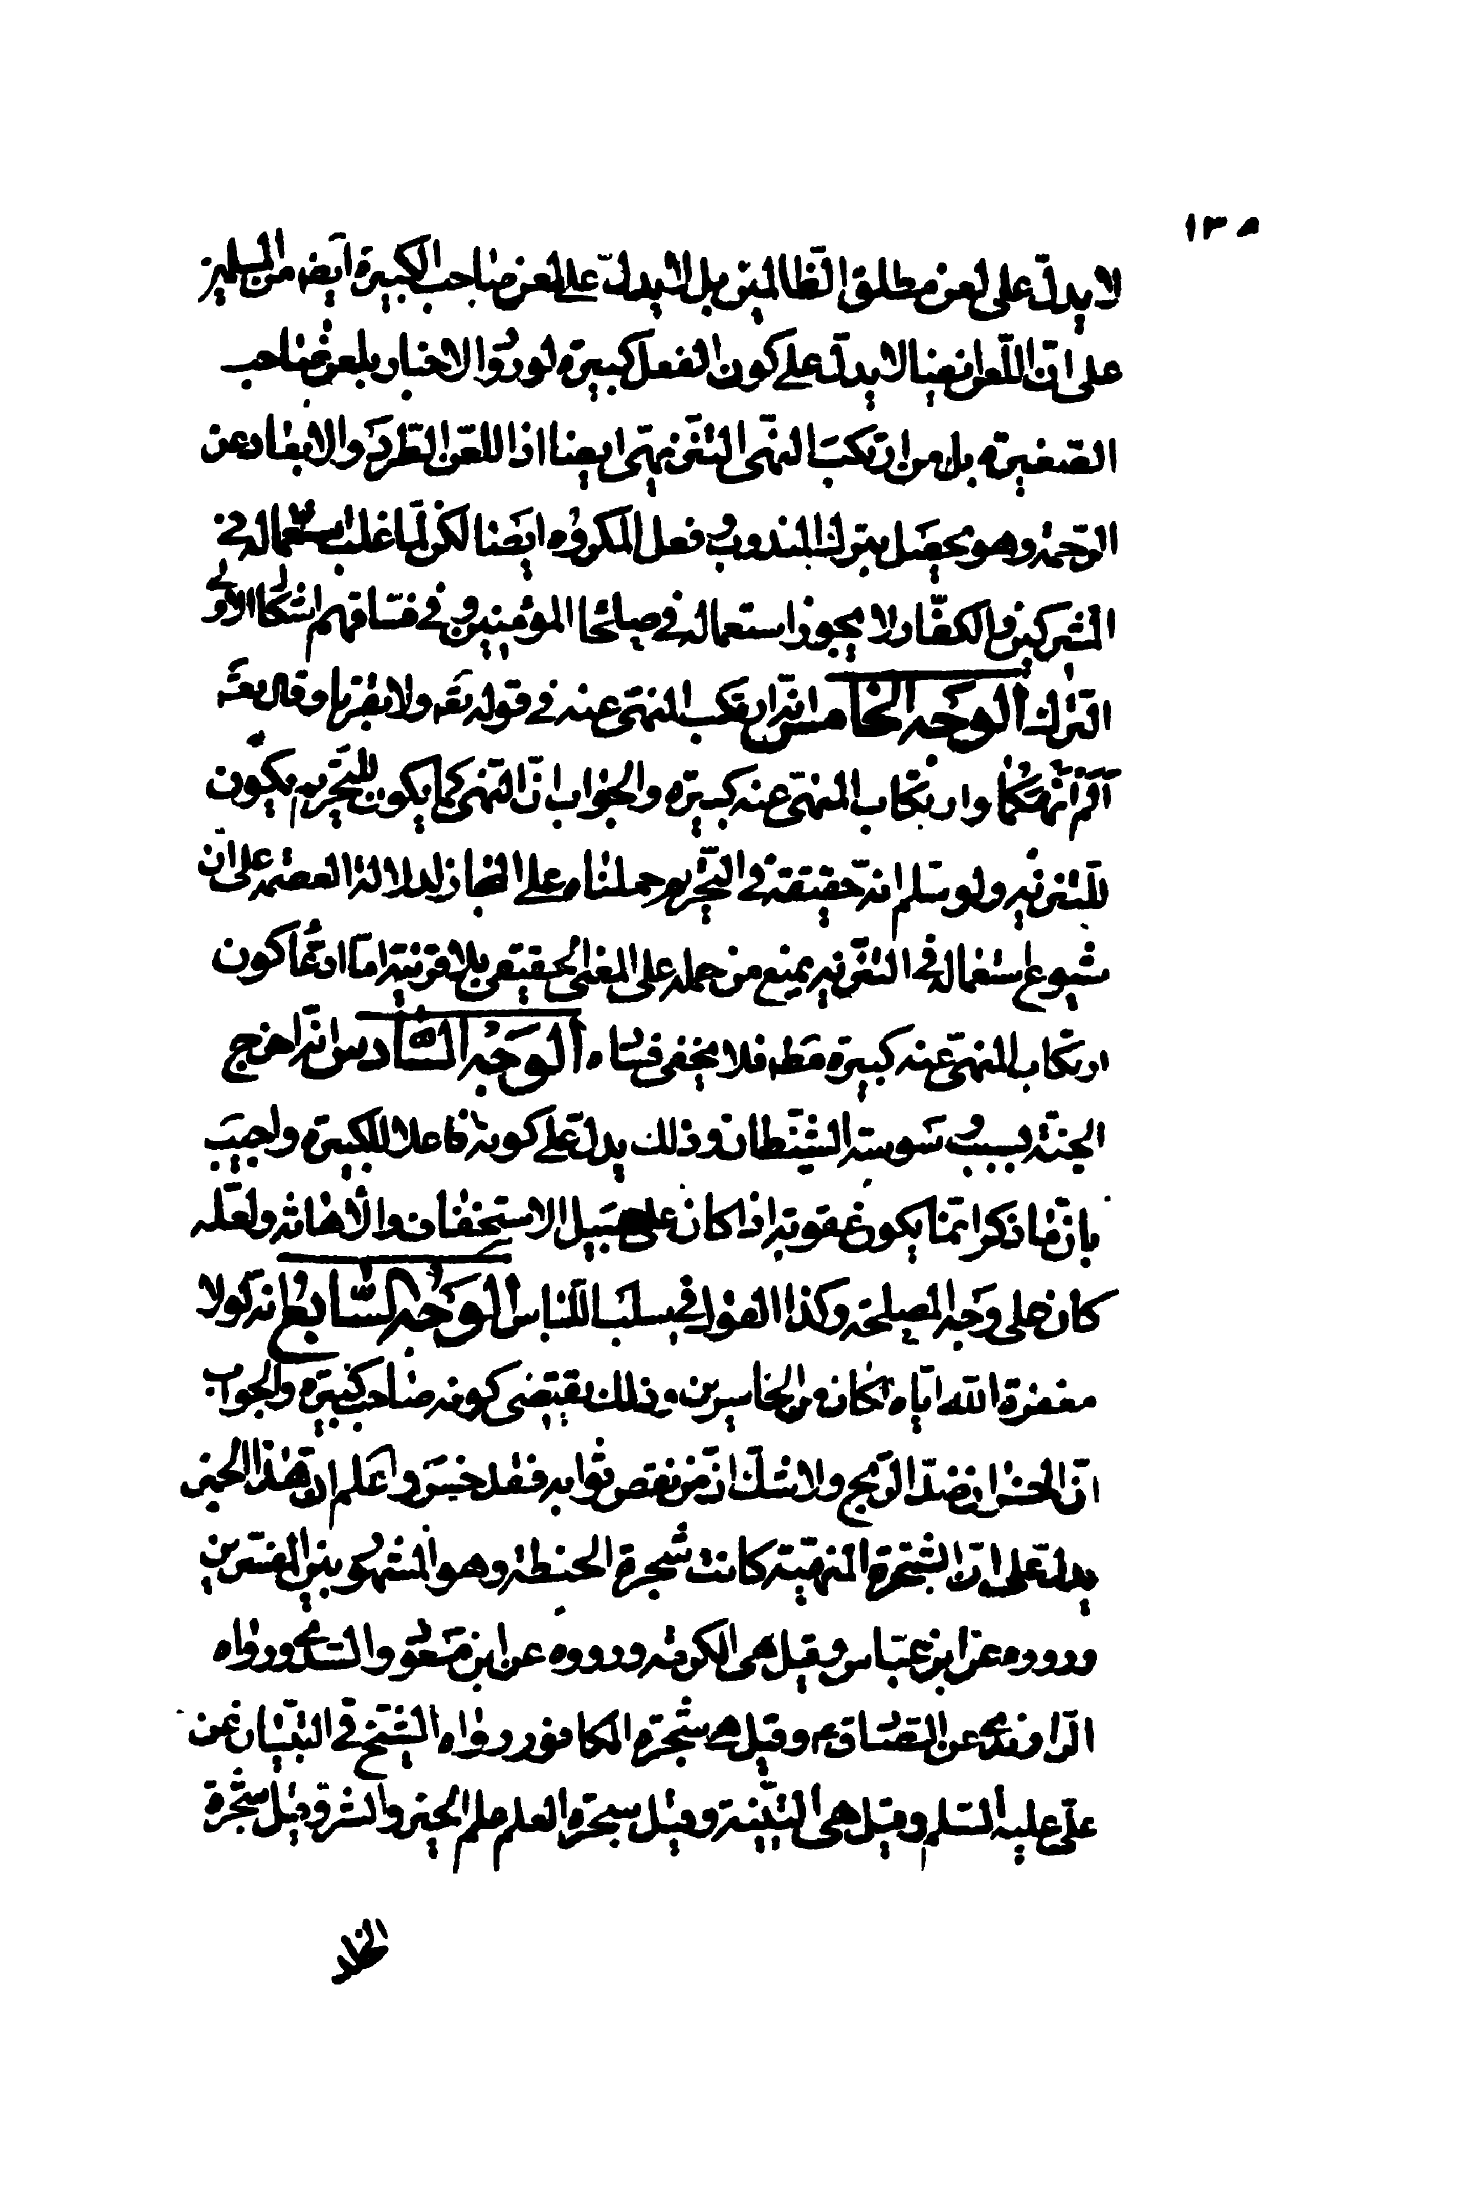 ١٣٨
لا يدلّ على لعن مطلق الظالمين بل لا يدلّ على لعن صاحب الكبيرة ايض من المسلمين
على انّ اللعن ايضا لا يدلّ على كون الفعل كبيرة لورود الاخبار بلعن صاحب
الصغيرة بل من ارتكب النهى التنزيهى ايضا اذ اللعن الطرد والابعاد عن
الرحمة وهو يحصل بترك المندوب وفعل المكروه ايضا لكن لما غلب استعماله فى
المشركين والكفّار لا يجوز استعماله فى صلحاء المؤمنين وفى فساقهم اشكال والاولى
الترك الوجه الخامس انه ارتكب المنهى عنه فى قوله تعه ولا تقربا وقال تعه
الم انهكما وارتكاب المنهى عنه كبيرة والجواب انّ النهى كما يكون للتحريم يكون
للتنزيه ولو سلم انه حقيقة فى التحريم حملناه على المجاز لدلالة العصمة على ان
شيوع استعماله فى التنزيه يمنع من حمله على المعنى الحقيقى بلا قرينة امّا ادعاء كون
ارتكاب المنهى عنه كبيرة مطه فلا يخفى فساده الوجه السّادس انه اخرج
الجنة بسبب وسوسة الشيطان وذلك يدلّ على كونه فاعلا للكبيرة واجيب
بانّ ما ذكر انمّا يكون عقوبة اذا كان على سبيل الاستخفاف والاهانة ولعلّه
كان على وجه المصلحة وكذا القول فى سلب اللباس الوجه السّابع انه لولا
مغفرة الله ايّاه لكان من الخاسرين وذلك يقتضى كونه صاحب كبيرة والجواب
انّ الخسران ضدّ الربح ولا شك انّ من نقص ثوابه فقد خسر واعلم انّ هذا الخبر
يدلّ على انّ الشجرة المنهيّة كانت شجرة الحنطة وهو المشهور بين المفسرين
ورووه عن ابن عبّاس وقيل هى الكرمة ورووه عن ابن مسعود والسّدى ورواه
الرّاوندى عن الصّادق ع وقيل هى شجرة الكافور ورواه الشيخ فى التبيان عن
علىّ عليه السّلم وقيل هى التينة وقيل شجرة العلم علم الخير والشر وقيل شجرة
الخلد